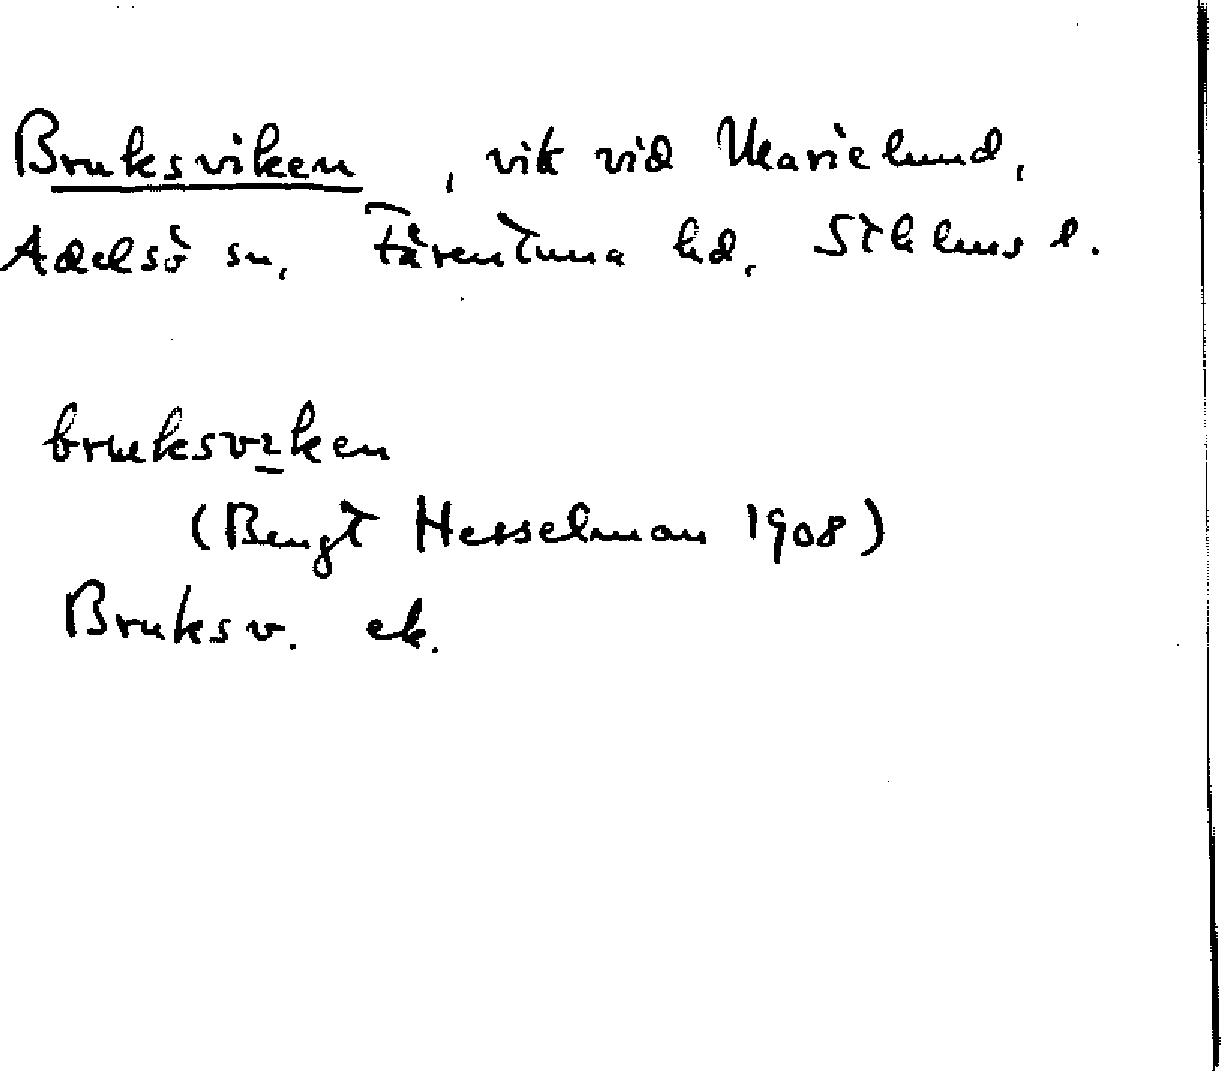 Bruksviken, vik vid Marielund,
Adelsö sn, Färentuna hd, Sthlms l.
bruksvıken
(Bengt Hesselman 1908)
Bruksv. ek.